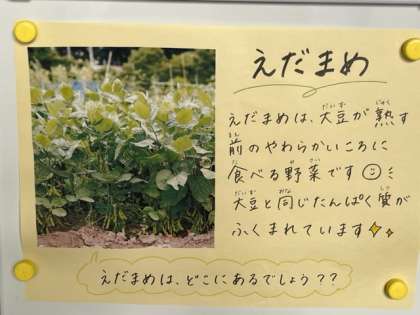 えだまめ
えだまめは、大豆が熟す
前のやわらかいころに
食べる野菜です
大豆と同じたんぱく質が
ふくまれています
えだまめは、どこにあるでしょう??